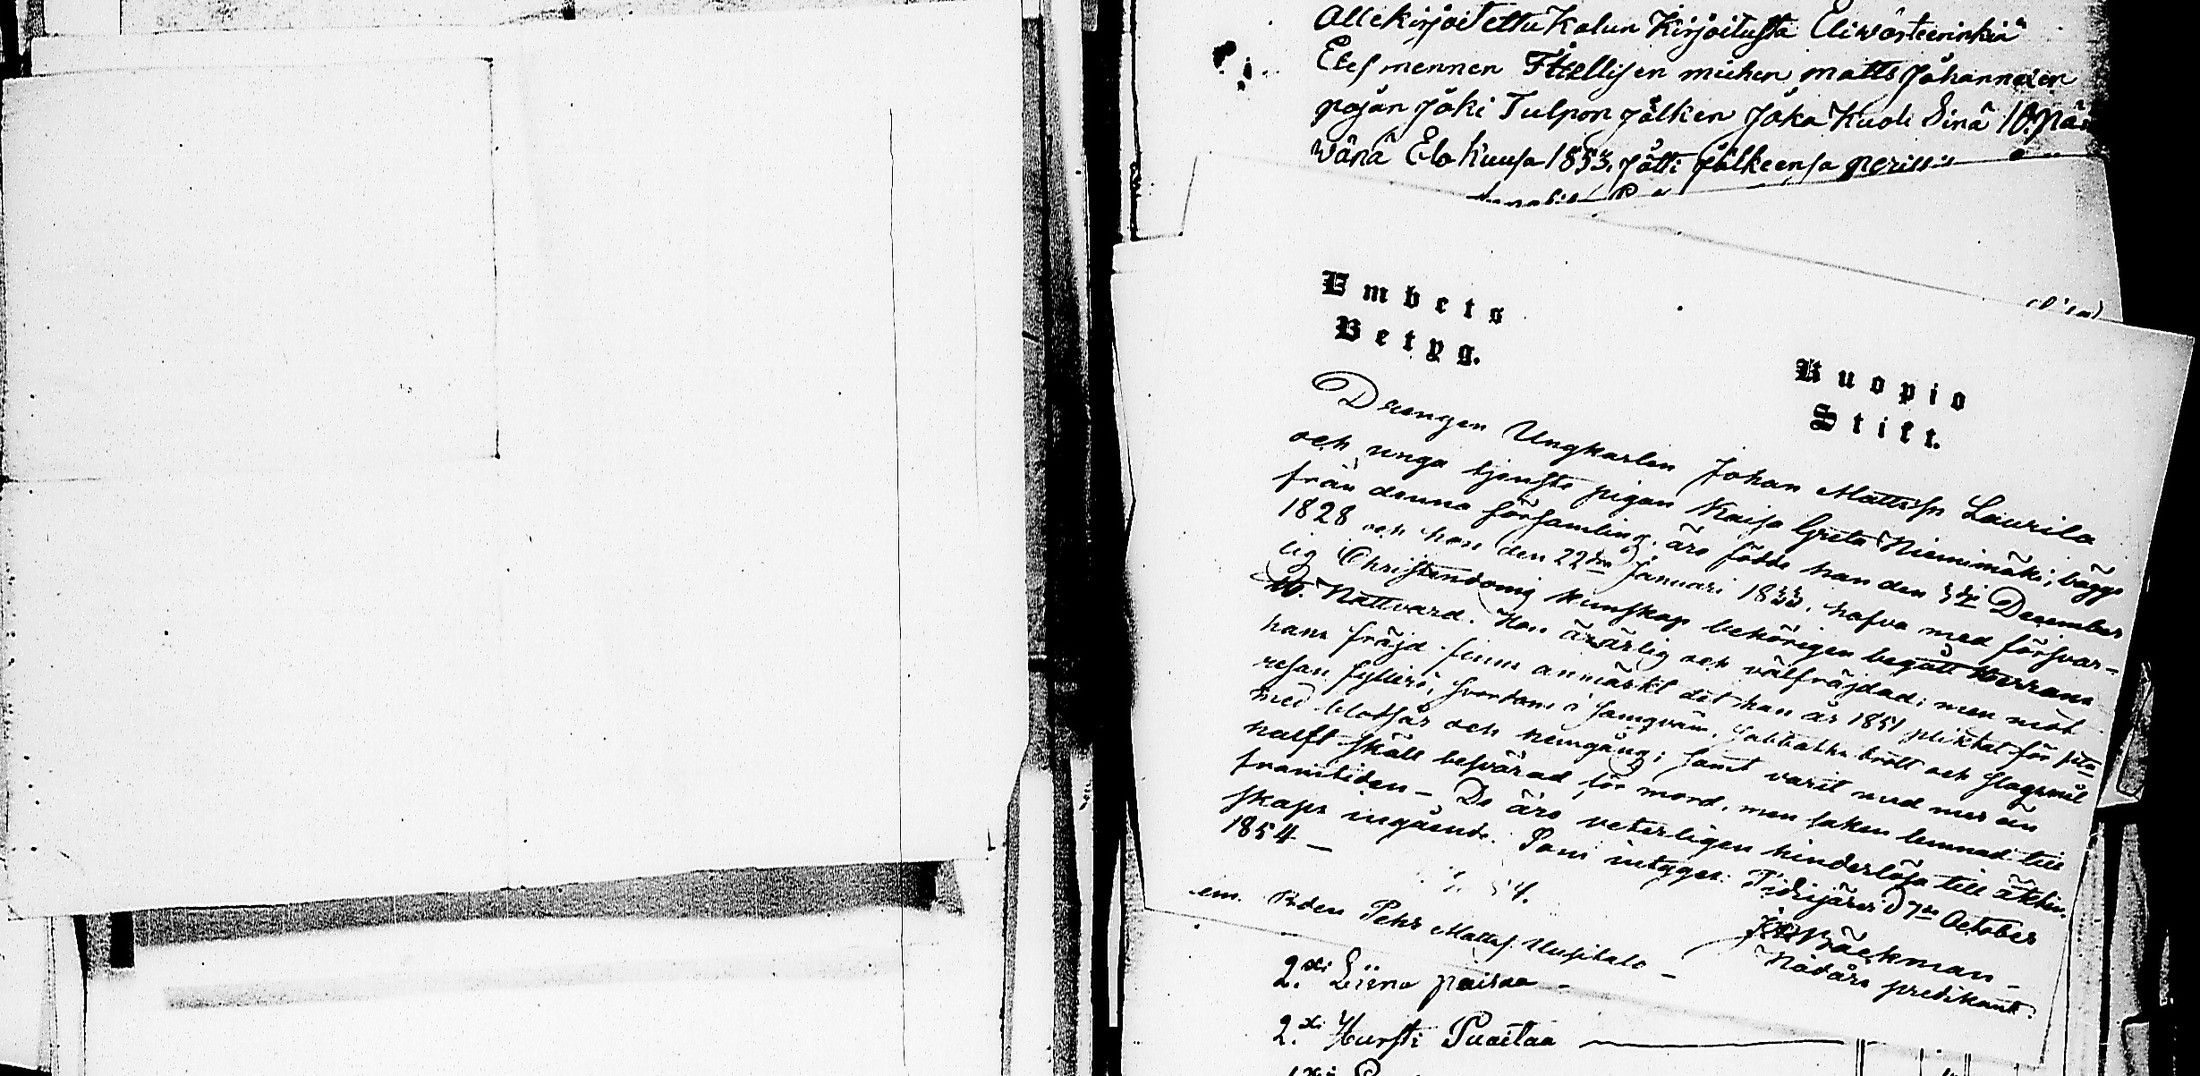 Allekirjoitettu Kalun Kirjoitusta Eli wärteerinkiä
Etes mennen Ittellisen miehen matts Johannexen
pojan Joki Tulpon jälken Joka Kuoli Sinä 10. päi
wänä Elo Kuusa 1853. Jätti Jälkeensä
Embets
Betyg.
Kuopio
Stift.
Drengen Ungkarlen Johan Mattsson Laurila
och unga tjenste pigan Kaisa Greta Niemimäki, bägge
från denna församling, äro födde han den 3die December
1828 och hon den 22dra Januari 1833, hafva med försvar-
lig Christendoms kunskap behörigen begått Herrans
H. Nattvard. Hon är ärlig och välfräjdad; men mot
hans fräjd finns anmärkt det han år 1851 pliktat för
resan fylleri, svordom i samqväm, sabbaths brott och slagsmål
med blodsår och hemgång; samt varit med mer än
halft skäl besvärad för mord, men saken lemnad till
framtiden – De äro veterligen hinderlösa till äkten-
skaps ingående. Som intygar: Idijärvi d 7de October
1854 –
Bäckman –
Nådårs predikant.
Pehr Matts. Uusitalo –
2.xi Liina paitaa –
2.xi Hursti Puaitaa